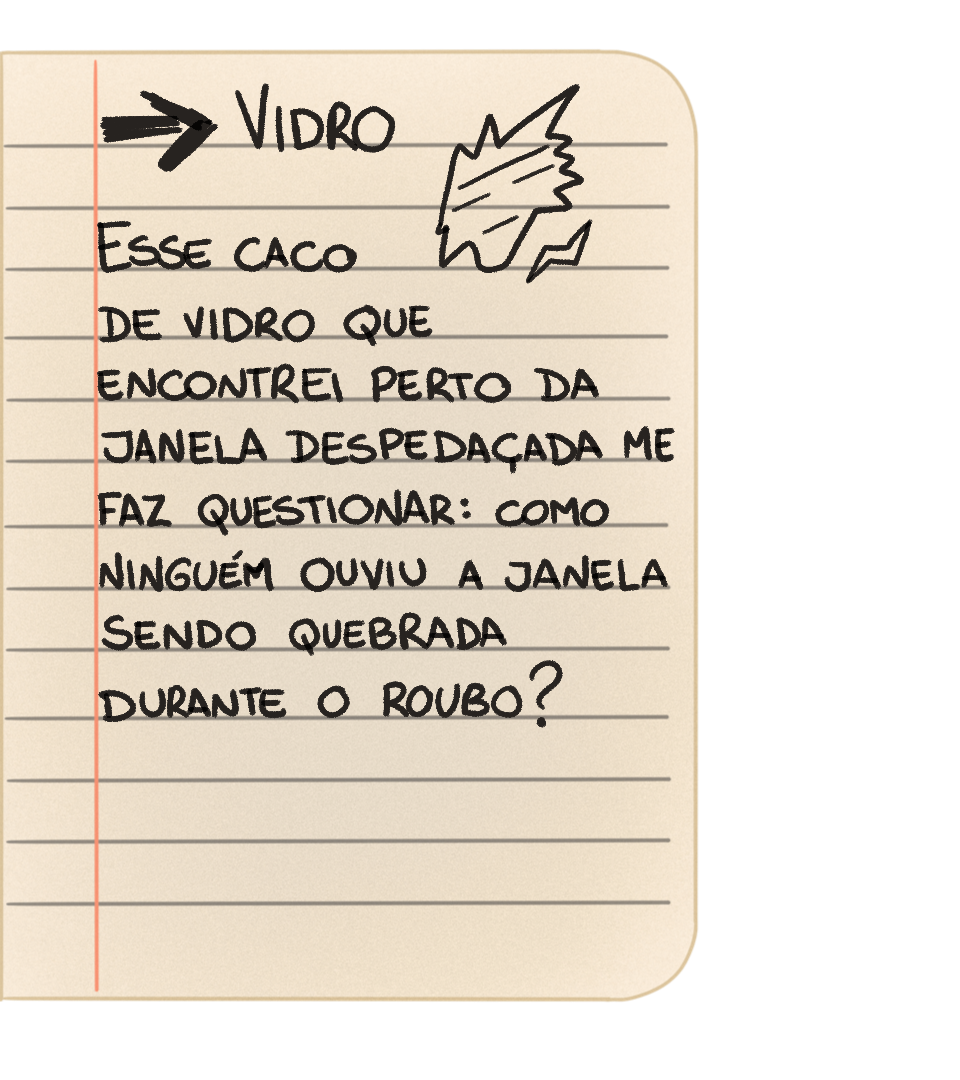 VIDRO
ESSE CACO
DE VIDRO QUE
ENCONTREI PERTO DA
JANELA DESPEDAÇADA ME
FAZ QUESTIONAR: COMO
NINGUÉM OUVIU A JANELA
SENDO QUEBRADA
DURANTE O ROUBO?